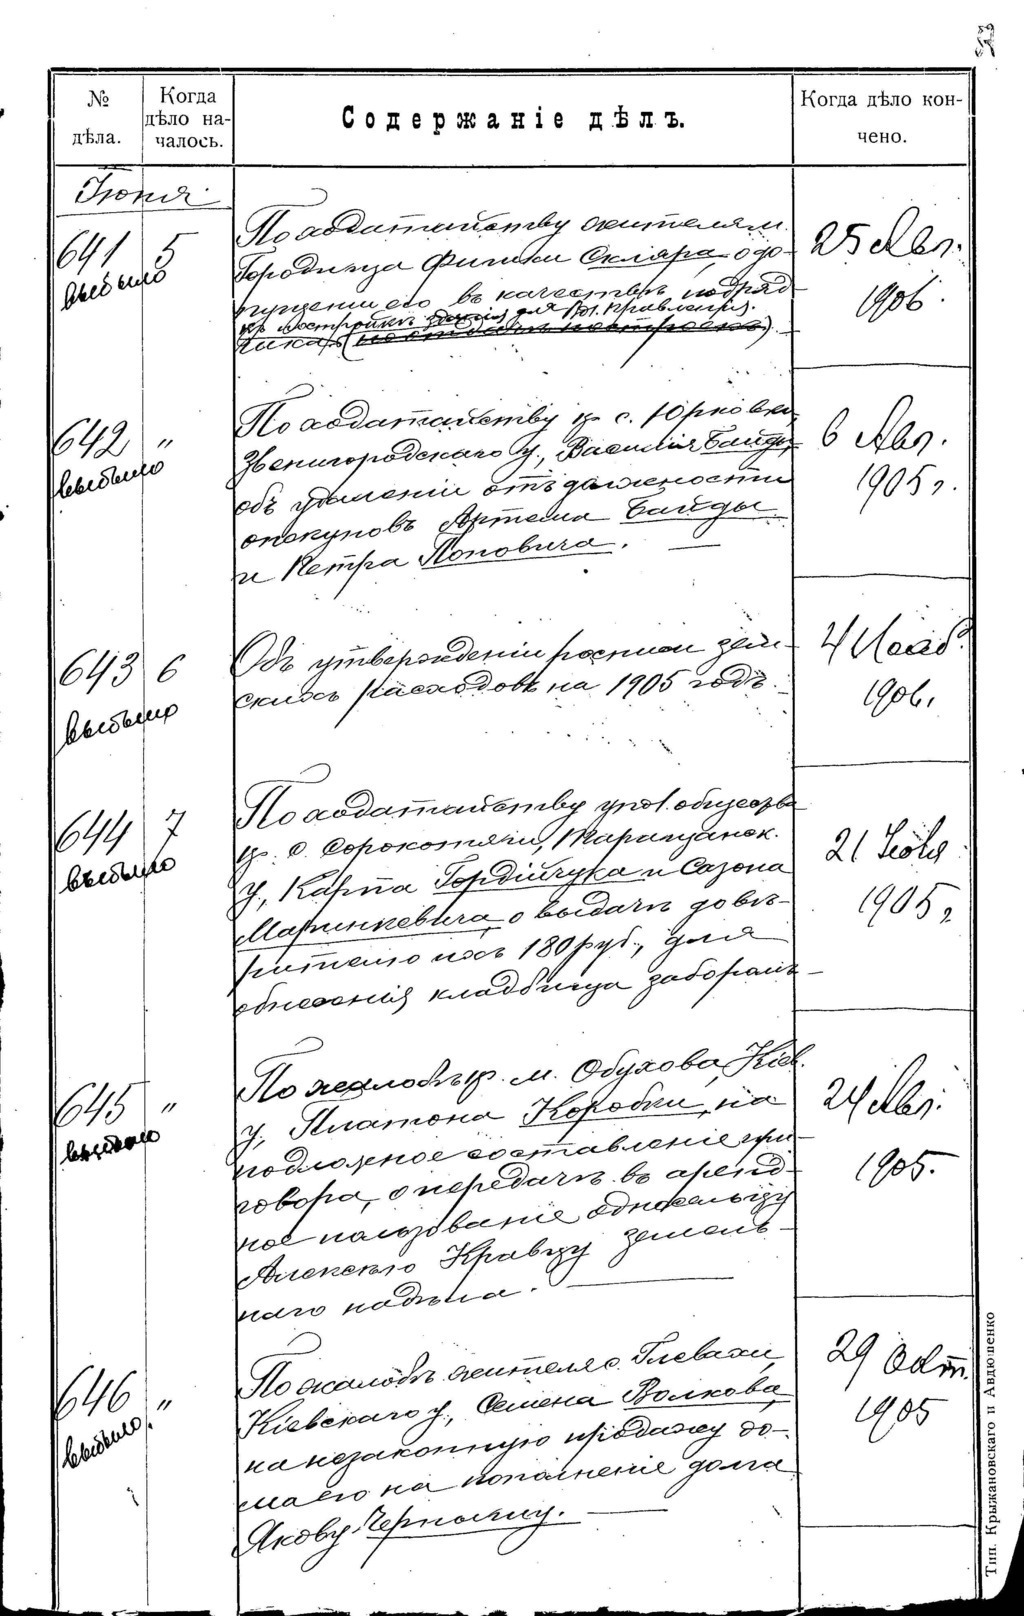 52
№ дѣла.
Когда дѣло началось.
Содержаніе дѣлъ.
Когда дѣло кончено.
Іюня
641 5
выбыло
По ходатайству жителя м.
Городища Фишки Скляра, о до-
пущеніи его въ качествѣ подряд
къ постройкѣ зданія для Вол. Правленія.
чика
25 Авг.
1906.
642 "
выбыло
По ходатайству кр. с. Юрковки,
Звенигородскаго у., Василія Байды,
объ удаленіи отъ должности
опекуновъ Артема Байды
и Петра Поповича.
6 Авг.
1905 г.
643 6
выбыло
Объ утвержденіи росписи зем-
скихъ расходовъ на 1905 годъ.
4
1906.
644 7
выбыло
По ходатайству упол. общества
кр. с. Сорокотяги, Таращанск.
у., Карпа Гордійчука и Сазона
Маринкевича о выдачѣ довѣ-
рителю ихъ 180 руб., для
обнесенія кладбища заборомъ
21 Іюля
1905 г.
645 "
выбыло
По жалобѣ кр. м. Обухова, Кіев.
у., Платона Коробки, на
подложное составленіе при-
говора, о передачѣ въ аренд-
ное пользованіе односельцу
Алексѣю Кравцу земель-
наго надѣла.
24 Авг.
1905.
646 "
выбыло.
По жалобѣ жителя с. Глевахи,
Кіевскаго у., Семена Волкова,
на незаконную продажу до-
ма его на пополненіе долга
Якову Черныешу.
29 Окт.
1905
Тип. Крыжановскаго и Авдюшенко